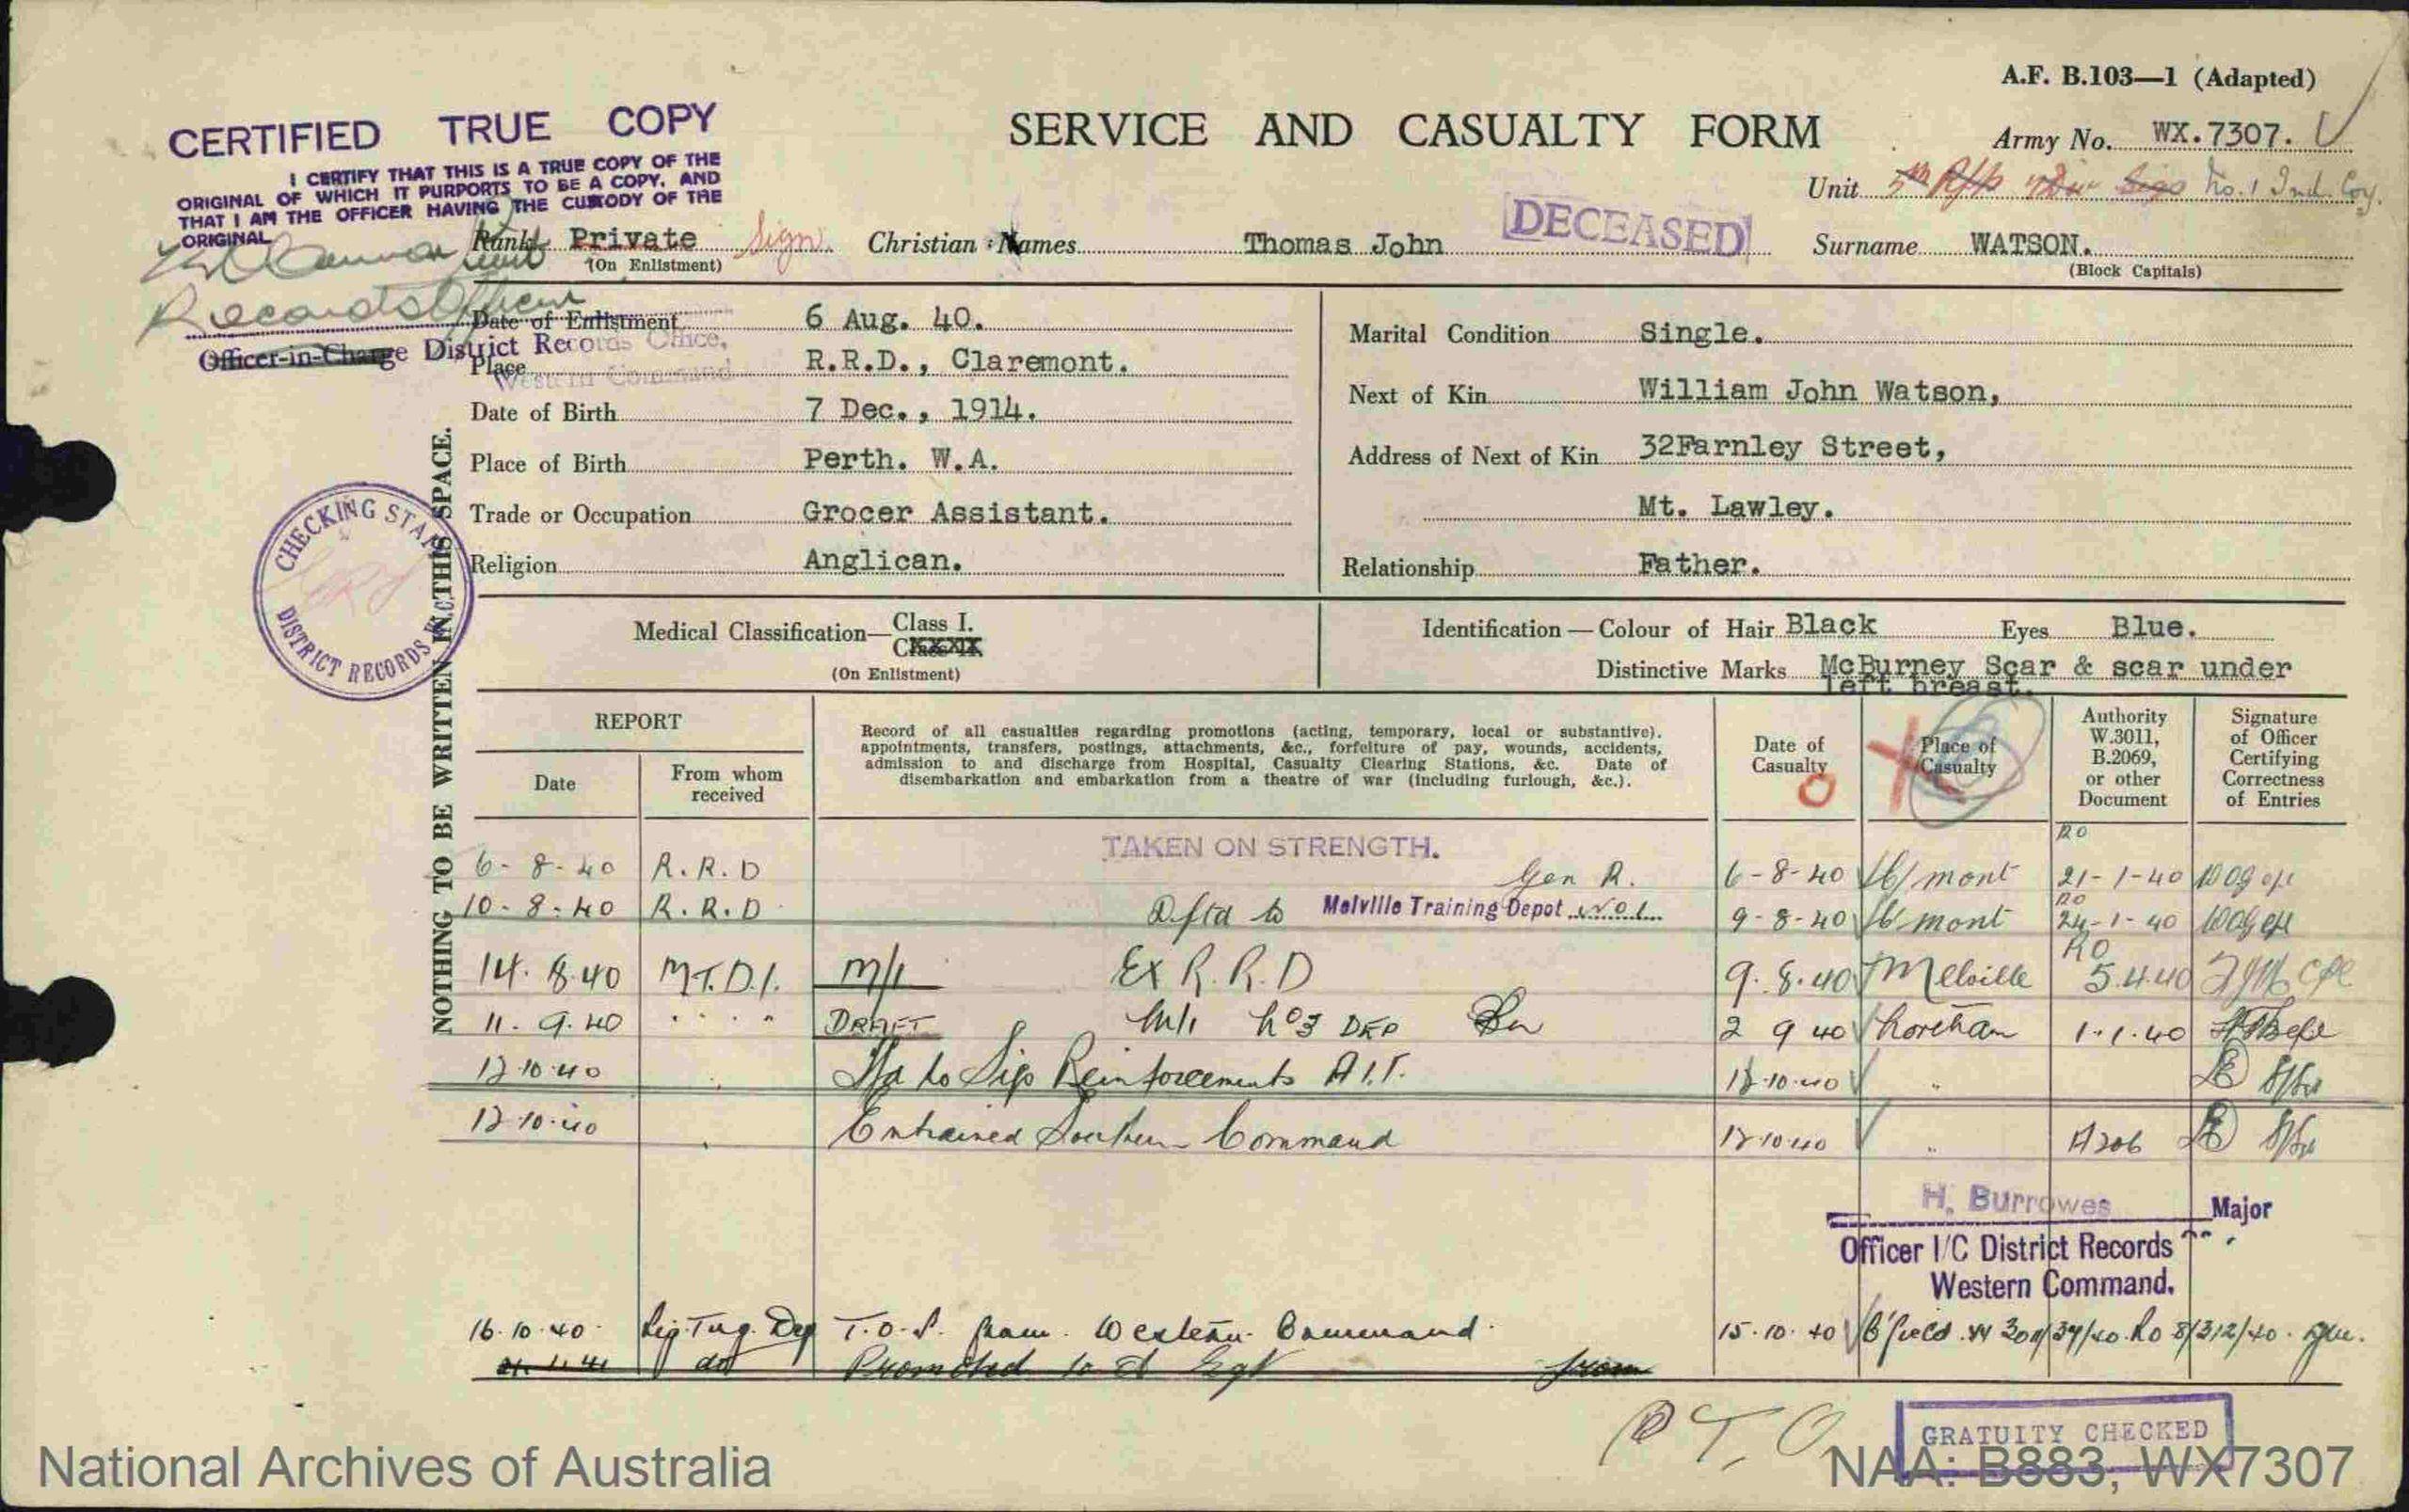 A.F. B.103—1 (Adapted)
CERTIFIED TRUE COPY
I CERTIFY THAT THIS IS A TRUE COPY OF THE
ORIGINAL OF WHICH IT PURPORTS TO BE A COPY, AND
THAT I AM THE OFFICER HAVING THE CUSTODY OF THE
ORIGINAL
Records Officer
Officer-in-Charge District Records Office,
Western Command
SERVICE AND CASUALTY FORM
Army No. WX.7307.
Unit 5th R/fs Sigs No. 1 Ind. Coy.
Rank Private Sign. Christian Names Thomas John DECEASED Surname WATSON.
(On Enlistment) (Block Capitals)
Date of Enlistment 6 Aug. 40.
Place R.R.D., Claremont.
Date of Birth 7 Dec., 1914.
Place of Birth Perth. W.A.
Trade or Occupation Grocer Assistant.
Religion Anglican.
Marital Condition Single.
Next of Kin William John Watson,
Address of Next of Kin 32Farnley Street,
Mt. Lawley.
Relationship Father.
CHECKING STAFF
DISTRICT RECORDS
NOTHING TO BE WRITTEN IN THIS SPACE.
Medical Classification— Class I.
(On Enlistment)
Identification — Colour of Hair Black Eyes Blue.
Distinctive Marks McBurney Scar & scar under
left breast.
REPORT
Date
From whom received
Record of all casualties regarding promotions (acting, temporary, local or substantive).
appointments, transfers, postings, attachments, &c., forfeiture of pay, wounds, accidents,
admission to and discharge from Hospital, Casualty Clearing Stations, &c. Date of
disembarkation and embarkation from a theatre of war (including furlough, &c.).
Date of Casualty
Place of Casualty
Authority W.3011, B.2069, or other Document
Signature of Officer Certifying Correctness of Entries
TAKEN ON STRENGTH. RO
6-8-40 R.R.D Gen R. 6-8-40 Cl/mont 21-1-40
10-8-40 R.R.D Dftd to Melville Training Depot No 1 9-8-40 Cl/mont RO 24-1-40
14.8.40 M.T.D.1. M/I Ex R.R.D 9.8.40 Melville RO 5.4.40
11.9.40 " DRAFT M/I No 3 DEP 2 9 40 Northam 1.1.40
12.10.40 " to Sigs Reinforcements A.I.F. 12.10.40 "
12.10.40 " Entrained Southern Command 12.10.40 " A206
H. Burrowes Major
Officer I/C District Records
Western Command.
16.10.40 Sig. Tng. Dep T.O.S. from Western Command 15.10.40 B'field W 3011/34/40 Ro 8/312/40
do Promoted to A/Sgt
P.T.O
GRATUITY CHECKED
National Archives of Australia
NAA: B883, WX7307